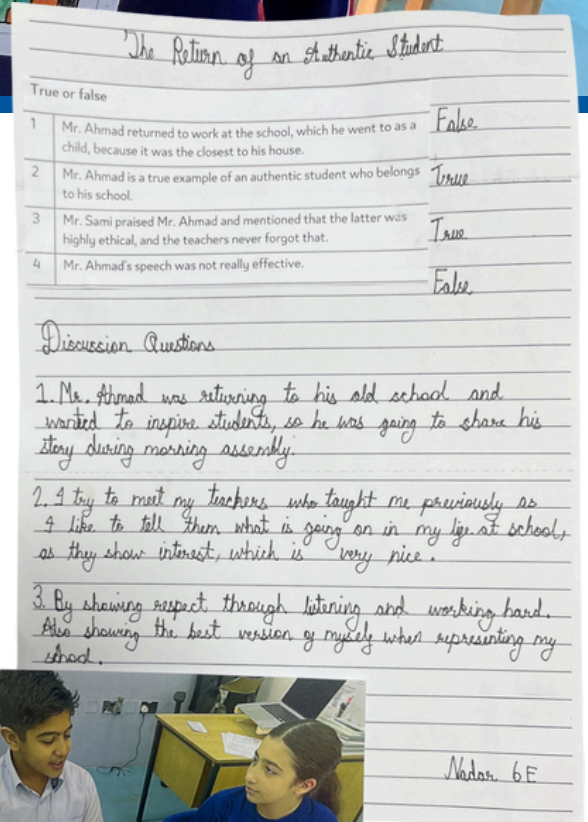 The Return of an Authentic Student
True or false
1 Mr. Ahmad returned to work at the school, which he went to as a
child, because it was the closest to his house.
False
2 Mr. Ahmad is a true example of an authentic student who belongs
to his school.
True
3 Mr. Sami praised Mr. Ahmad and mentioned that the latter was
highly ethical, and the teachers never forgot that.
True
4 Mr. Ahmad's speech was not really effective.
False
Discussion Questions
1. Mr. Ahmad was returning to his old school and
wanted to inspire students, so he was going to share his
story during morning assembly.
2. I try to meet my teachers who taught me previously as
I like to tell them what is going on in my life at school,
as they show interest, which is very nice.
3. By showing respect through listening and working hard.
Also showing the best version of myself when representing my
school.
6E